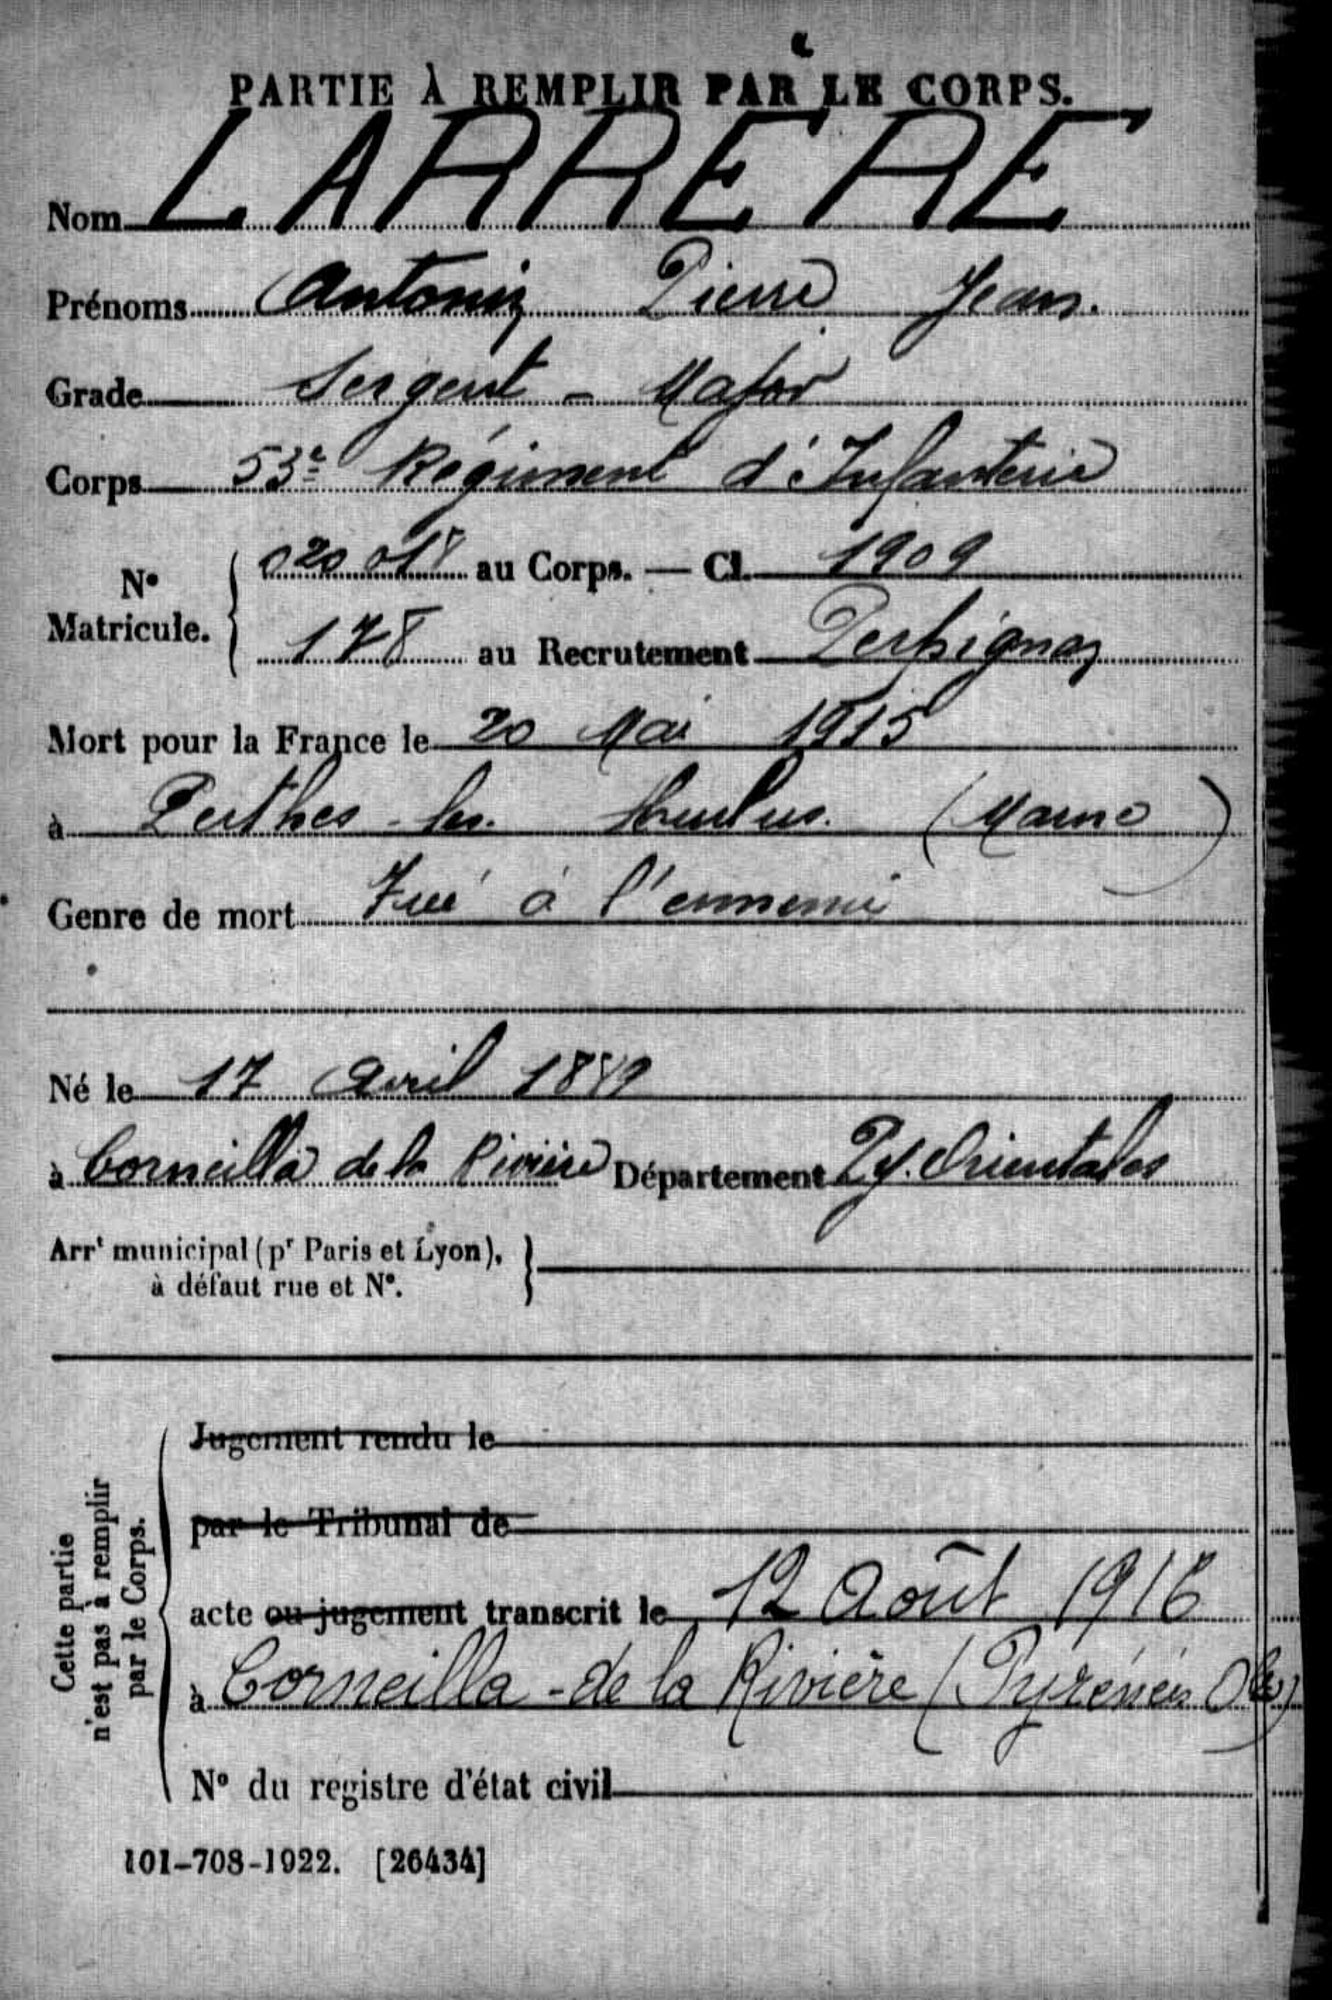 PARTIE À REMPLIR PAR LE CORPS.
Nom LARRERE
Prénoms Antonin Pierre Jean.
Grade Sergent - Major
Corps 53e Régiment d'Infanterie
N° Matricule. 020 018 au Corps. — Cl. 1909
178 au Recrutement Perpignan
Mort pour la France le 20 Mai 1915
à Perthes-les-Hurlus. (Marne)
Genre de mort Tué à l'ennemi
Né le 17 Avril 1889
à Corneilla de la Rivière Département Py. Orientales
Arrt municipal (pr Paris et Lyon),
à défaut rue et N°.
Cette partie
n'est pas à remplir
par le Corps.
Jugement rendu le
par le Tribunal de
acte ou jugement transcrit le 12 Août 1916
à Corneilla-de la Rivière (Pyrénées Oles)
N° du registre d'état civil
101-708-1922. [26434]